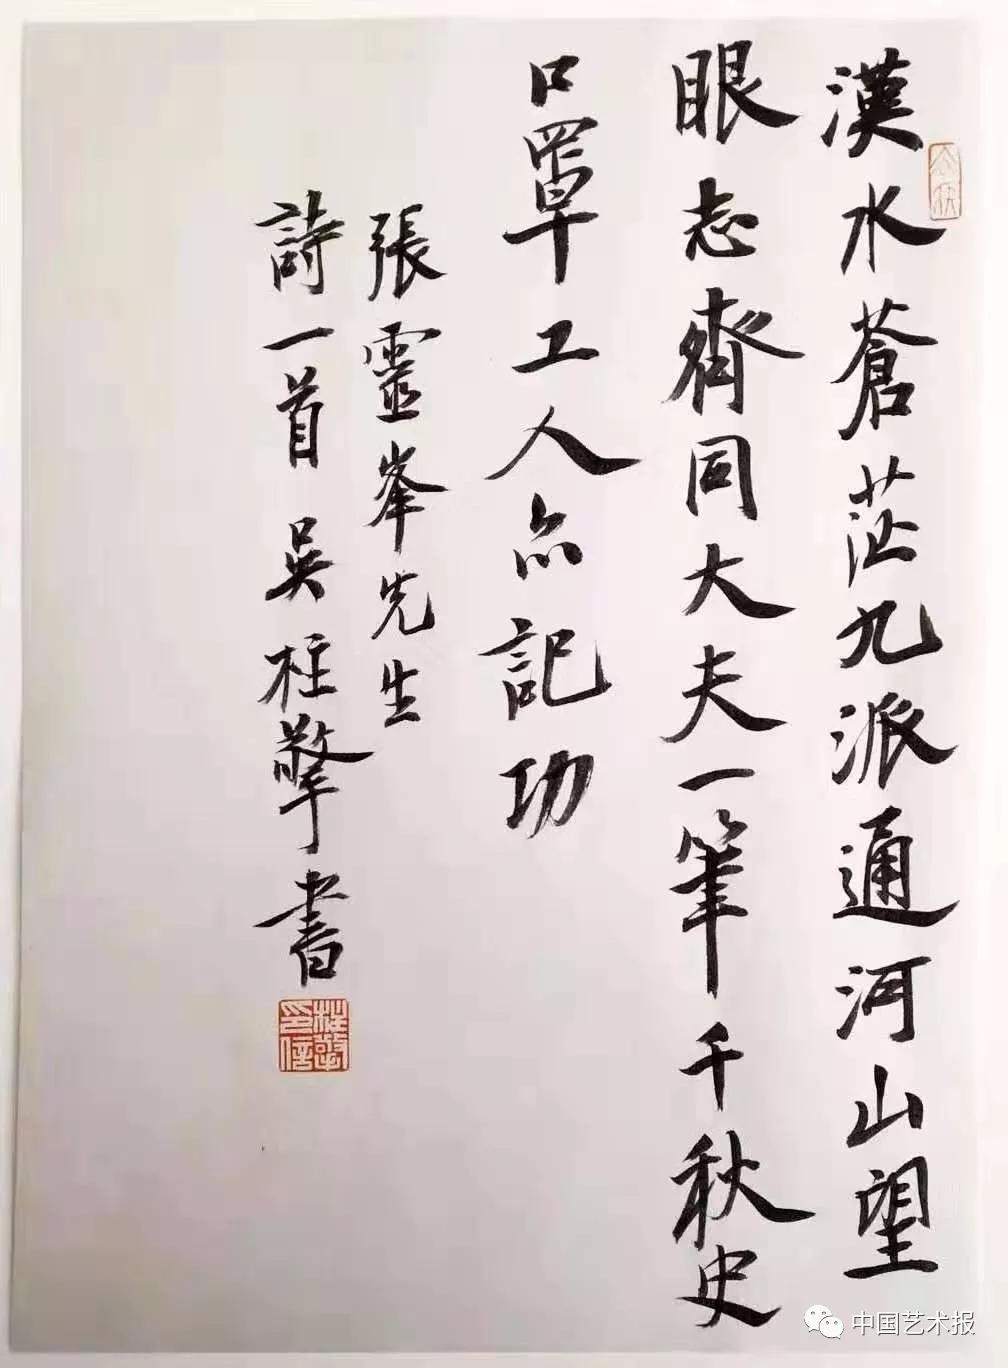 漢水蒼茫九派通河山望
眼志齊同大夫一筆千秋史
口罩工人亦記功
張靈峯先生
詩一首吴柱擎書
柱擎印信
中国艺术报